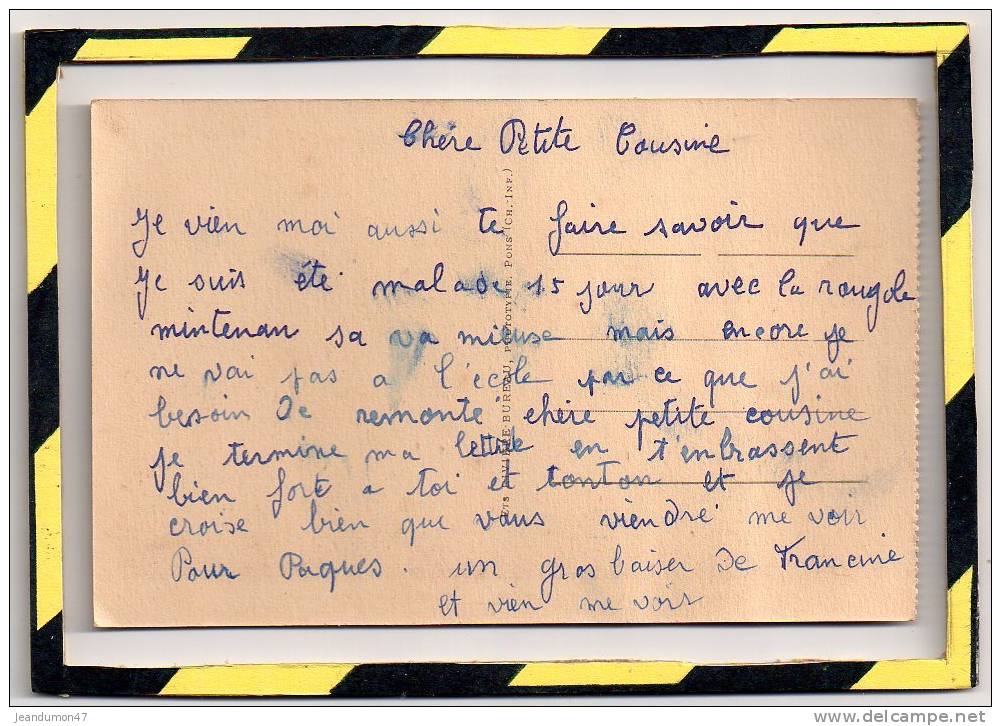 Chère Petite Cousine
Je vien moi aussi te faire savoir que
Je suis été malade 15 jour avec la rougole
mintenan sa va mieuse mais encore je
ne vai pas a l'école par ce que j'ai
besoin de remonté chère petite cousine
je termine ma lettre en t'enbrassent
bien fort a toi et tonton et je
croise bien que vous viendré me voir
Pour Paques. un gros baiser de Francine
et vien me voir
BUREAU, PHOTOTYPIE, PONS (CH.-INF.)
jeandumon47